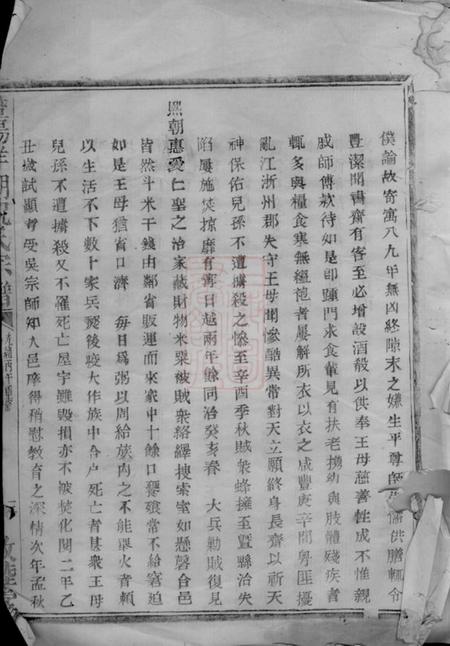 僕諭故寄寓八九年無凶終隙末之嫌生平尊師備供膳輒令
豐潔聞書齋有客至必增設酒殽以供奉王母慈善性成不惟親
戚師傅款待如是即踵門求食輩見有扶老攜幼與肢體殘疾者
輒多與糧食寒無縕袍者屢解所衣以衣之咸豐庚辛間粵匪擾
亂江浙州郡失守王母聞慘酷異常對天立願終身長齋以祈天
神保佑兒孫不遭購殺之慘至辛酉季秋賊眾蜂擁至暨縣治失
陷屢施焚掠靡有海日越兩年餘同治癸亥春 大兵勦賊復見
熙朝惠愛仁聖之治家藏財物米粟被賊衆絡繹搜索室如懸磬合邑
皆然斗米千錢由鄰省販運而來家中十餘口饔飧常不給窘迫
如是王母猶省口濟 每日爲粥以周給族內之不能舉火者賴
以生活不下數十家兵燹後疫大作族中合戶死亡者甚衆王母
兒孫不遭購殺又不罹死亡屋宇雖毀損亦不被焚化閱二年乙
丑歲試顯考受吳宗師知入邑庠得稍慰教育之深情次年孟秋
宗譜
光緒丙午重修